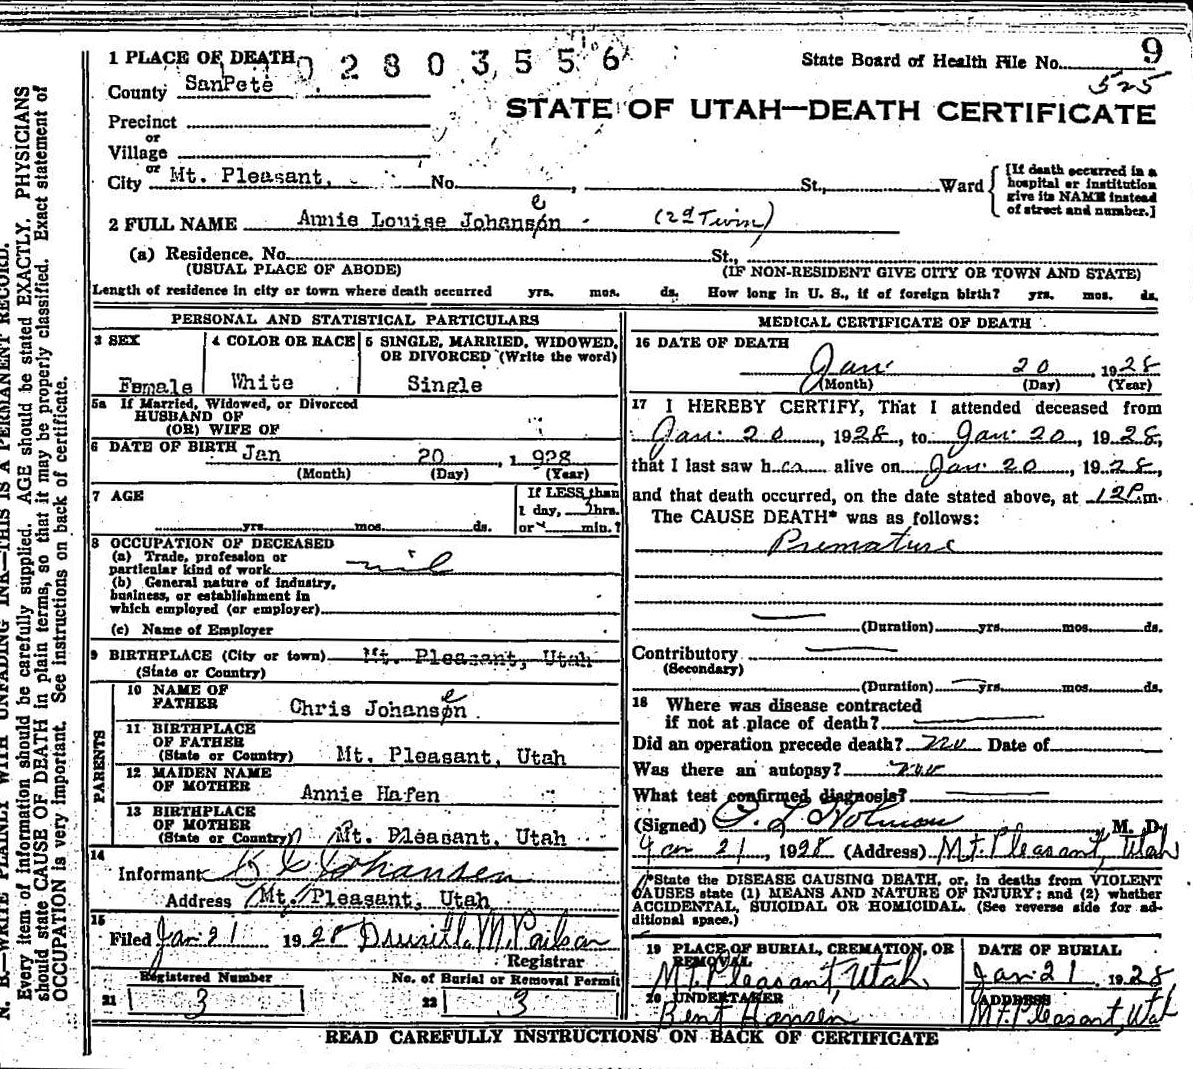 1 PLACE OF DEATH 02803556
State Board of Health File No. 9
525
County SanPete
STATE OF UTAH—DEATH CERTIFICATE
Precinct
or
Village
or
City Mt. Pleasant, No. , St., Ward
[If death occurred in a
hospital or institution
give its NAME instead
of street and number.]
2 FULL NAME Annie Louise Johansen (2d Twin)
(a) Residence. No. St.,
(USUAL PLACE OF ABODE) (IF NON-RESIDENT GIVE CITY OR TOWN AND STATE)
Length of residence in city or town where death occurred yrs. mos. ds. How long in U. S., if of foreign birth? yrs. mos. ds.
PERSONAL AND STATISTICAL PARTICULARS
3 SEX 4 COLOR OR RACE 5 SINGLE, MARRIED, WIDOWED,
OR DIVORCED (Write the word)
Female White Single
5a If Married, Widowed, or Divorced
HUSBAND OF
(OR) WIFE OF
6 DATE OF BIRTH Jan 20, 1928
(Month) (Day) (Year)
7 AGE If LESS than
1 day, hrs.
yrs. mos. ds. or min.?
8 OCCUPATION OF DECEASED
(a) Trade, profession or
particular kind of work nil
(b) General nature of industry,
business, or establishment in
which employed (or employer)
(c) Name of Employer
9 BIRTHPLACE (City or town) Mt. Pleasant, Utah
(State or Country)
PARENTS
10 NAME OF
FATHER Chris Johansen
11 BIRTHPLACE
OF FATHER
(State or Country) Mt. Pleasant, Utah
12 MAIDEN NAME
OF MOTHER Annie Hafen
13 BIRTHPLACE
OF MOTHER
(State or Country) Mt. Pleasant, Utah
14
Informant Johansen
Address Mt. Pleasant, Utah
15
Filed Jan 21 1928 M. Poulson
Registrar
Registered Number No. of Burial or Removal Permit
21 3 22 3
MEDICAL CERTIFICATE OF DEATH
16 DATE OF DEATH
Jan 20, 1928
(Month) (Day) (Year)
17 I HEREBY CERTIFY, That I attended deceased from
Jan. 20, 1928, to Jan. 20, 1928,
that I last saw h alive on Jan. 20, 1928,
and that death occurred, on the date stated above, at 12 P.m.
The CAUSE DEATH* was as follows:
Premature
(Duration) yrs. mos. ds.
Contributory
(Secondary)
(Duration) yrs. mos. ds.
18 Where was disease contracted
if not at place of death?
Did an operation precede death? no Date of
Was there an autopsy? no
What test confirmed diagnosis?
(Signed) M. D.
Jan 21, 1928 (Address) Mt. Pleasant, Utah
*State the DISEASE CAUSING DEATH, or, in deaths from VIOLENT
CAUSES state (1) MEANS AND NATURE OF INJURY; and (2) whether
ACCIDENTAL, SUICIDAL OR HOMICIDAL. (See reverse side for ad-
ditional space.)
19 PLACE OF BURIAL, CREMATION, OR
REMOVAL
Mt. Pleasant, Utah
DATE OF BURIAL
Jan 21, 1928
20 UNDERTAKER
Bent Hansen
ADDRESS
Mt. Pleasant, Utah
READ CAREFULLY INSTRUCTIONS ON BACK OF CERTIFICATE
N. B.—WRITE PLAINLY WITH UNFADING INK—THIS IS A PERMANENT RECORD.
Every item of information should be carefully supplied. AGE should be stated EXACTLY. PHYSICIANS
should state CAUSE OF DEATH in plain terms, so that it may be properly classified. Exact statement of
OCCUPATION is very important. See instructions on back of certificate.